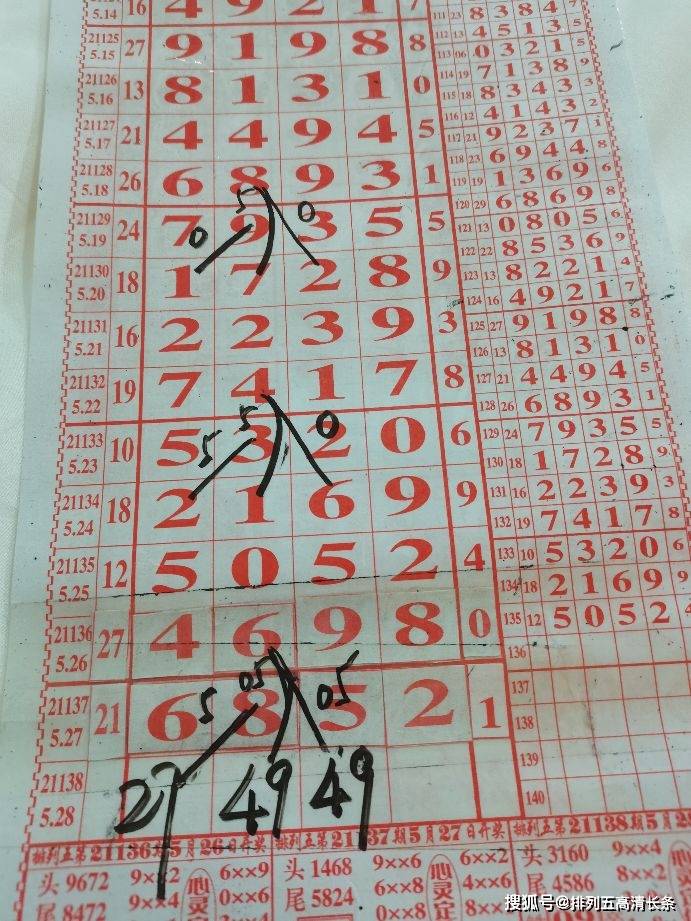 5.14 16 4 9 2 1 7
21125 5.15 27 9 1 9 8 8
21126 5.16 13 8 1 3 1 0
21127 5.17 21 4 4 9 4 5
21128 5.18 26 6 8 9 3 1
5 0
21129 5.19 24 7 9 3 5 5
0
21130 5.20 18 1 7 2 8 9
21131 5.21 16 2 2 3 9 3
21132 5.22 19 7 4 1 7 8
5 0
21133 5.23 10 5 3 2 0 6
5
21134 5.24 18 2 1 6 9 9
21135 5.25 12 5 0 5 2 4
21136 5.26 27 4 6 9 8 0
05 05
21137 5.27 21 6 8 5 2 1
5
21138 5.28 27 49 49
111 23 8 3 8 4 7
112 13 4 5 1 3 5
113 06 0 3 2 1 5
114 19 7 1 3 8 9
115 18 8 3 4 3 3
116 12 4 1 4 3 2
117 21 9 2 3 7 1
118 23 6 9 4 4 8
119 19 1 3 6 9 6
120 29 6 8 6 9 8
121 13 0 8 0 5 6
122 22 8 5 3 6 9
123 13 8 2 2 1 4
124 16 4 9 2 1 7
125 27 9 1 9 8 8
126 13 8 1 3 1 0
127 21 4 4 9 4 5
128 26 6 8 9 3 1
129 24 7 9 3 5 5
130 18 1 7 2 8 9
131 16 2 2 3 9 3
132 19 7 4 1 7 8
133 10 5 3 2 0 6
134 18 2 1 6 9 9
135 12 5 0 5 2 4
136
137
138
139
140
排列五第21136期5月26日开奖
头 9672 9××2 6××9
尾 8472 9××4 0××6
心灵
排列五第21137期5月27日开奖
头 1468 9××6 6××2
尾 5824 6××8 4××6
心灵
排列五第21138期5月28
头 3160 9××4
尾 4586 8××2
搜狐号@排列五高清长条